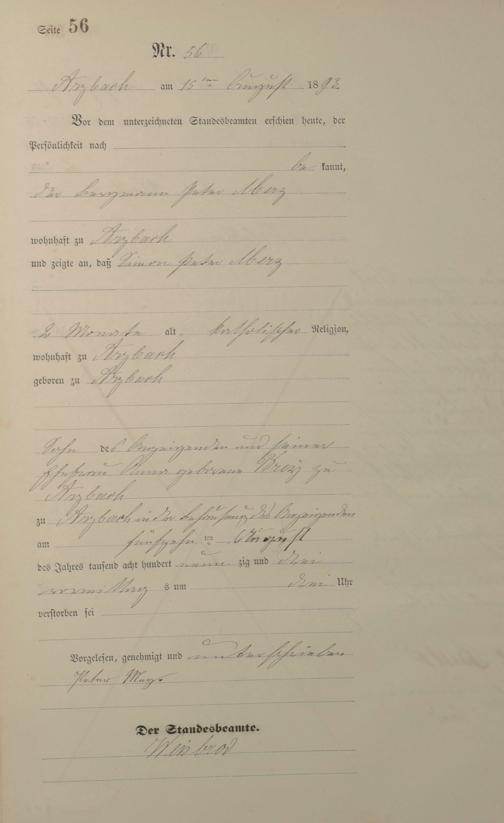 Seite 56
Nr. 56
Arzbach am 15ten August 1893
Vor dem unterzeichneten Standesbeamten erschien heute, der
Persönlichkeit nach
be kannt,
der Bergmann Peter Merz
wohnhaft zu Arzbach
und zeigte an, daß Simon Peter Merz
2 Monate alt, katholischer Religion,
wohnhaft zu Arzbach
geboren zu Arzbach
Sohn des Anzeigenden und seiner
Ehefrau Anna geborene zu
Arzbach
zu Arzbach in der Behausung des Anzeigenden
am fünfzehnten August
des Jahres tausend acht hundert neunzig und drei
vormittags um drei Uhr
verstorben sei
Vorgelesen, genehmigt und unterschrieben
Peter Merz
Der Standesbeamte.
Weisbrod